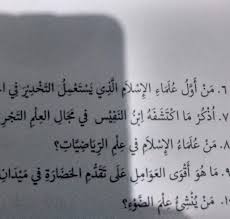 ٦. مَنْ أَوَّلُ عُلَمَاءِ الإِسْلَامِ الَّذِي يَسْتَعْمِلُ التَّخْدِيْرَ فِي
٧. أُذْكُرْ مَا اكْتَشَفَهُ إِبْنُ النَّفِيْسِ فِي مَجَالِ العِلْمِ
٨. مَنْ عُلَمَاءُ الإِسْلَامِ فِي عِلْمِ الرِّيَاضِيَّاتِ؟
٩. مَا هُوَ أَقْوَى العَوَامِلِ عَلَى تَقَدُّمِ الحَضَارَةِ فِي مَيْدَانِ
١٠. مَنْ يُنْشِئُ عِلْمَ الضَّوْءِ؟